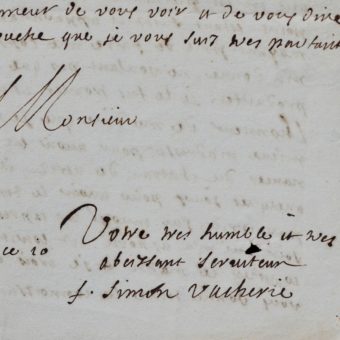 neur de vous voir et de vous dire
ouche que je vous suis tres parfait
Monsieur
Votre tres humble et tres
ce 10 obeissant serviteur
f. simon vacherie